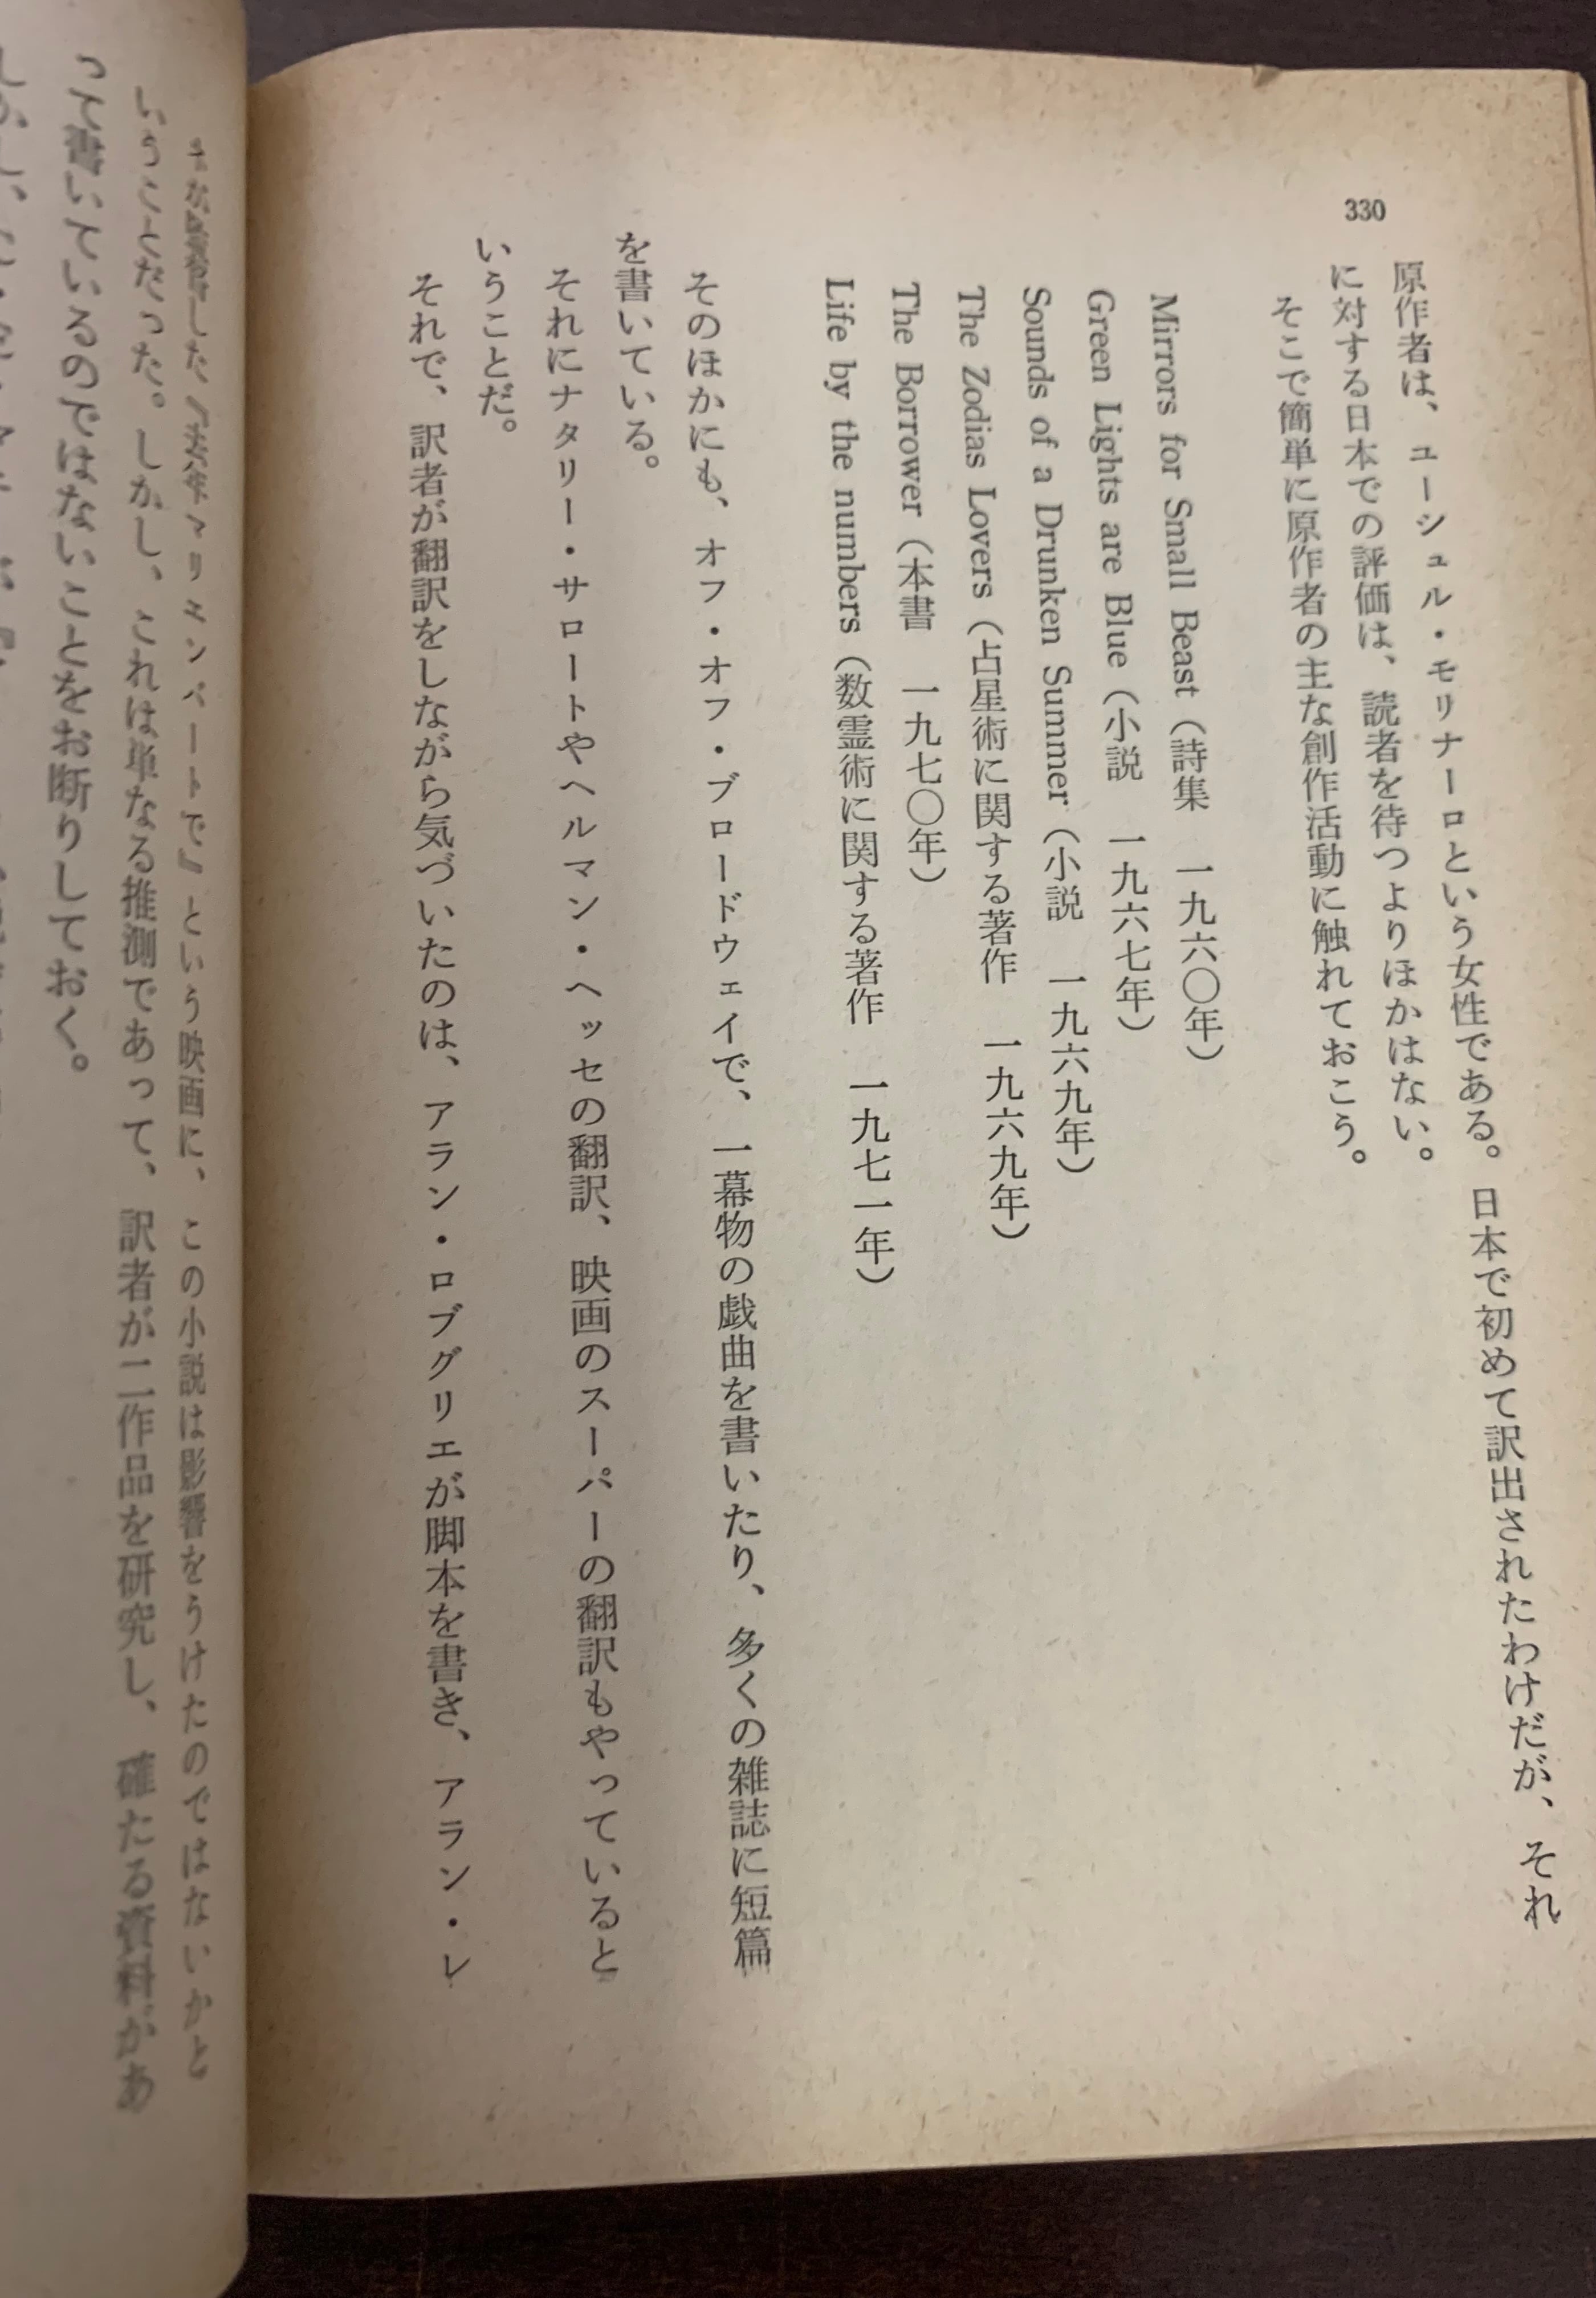 330
原作者は、ユーシュル・モリナーロという女性である。日本で初めて訳出されたわけだが、それ
に対する日本での評価は、読者を待つよりほかはない。
そこで簡単に原作者の主な創作活動に触れておこう。
Mirrors for Small Beast（詩集　一九六〇年）
Green Lights are Blue（小説　一九六七年）
Sounds of a Drunken Summer（小説　一九六九年）
The Zodias Lovers（占星術に関する著作　一九六九年）
The Borrower（本書　一九七〇年）
Life by the numbers（数霊術に関する著作　一九七一年）
そのほかにも、オフ・オフ・ブロードウェイで、一幕物の戯曲を書いたり、多くの雑誌に短篇
を書いている。
それにナタリー・サロートやヘルマン・ヘッセの翻訳、映画のスーパーの翻訳もやっていると
いうことだ。
それで、訳者が翻訳をしながら気づいたのは、アラン・ロブグリエが脚本を書き、アラン・レ
マリエンバートで』という映画に、この小説は影響をうけたのではないかと
いうことだった。しかし、これは単なる推測であって、訳者が二作品を研究し、確たる資料があ
って書いているのではないことをお断りしておく。